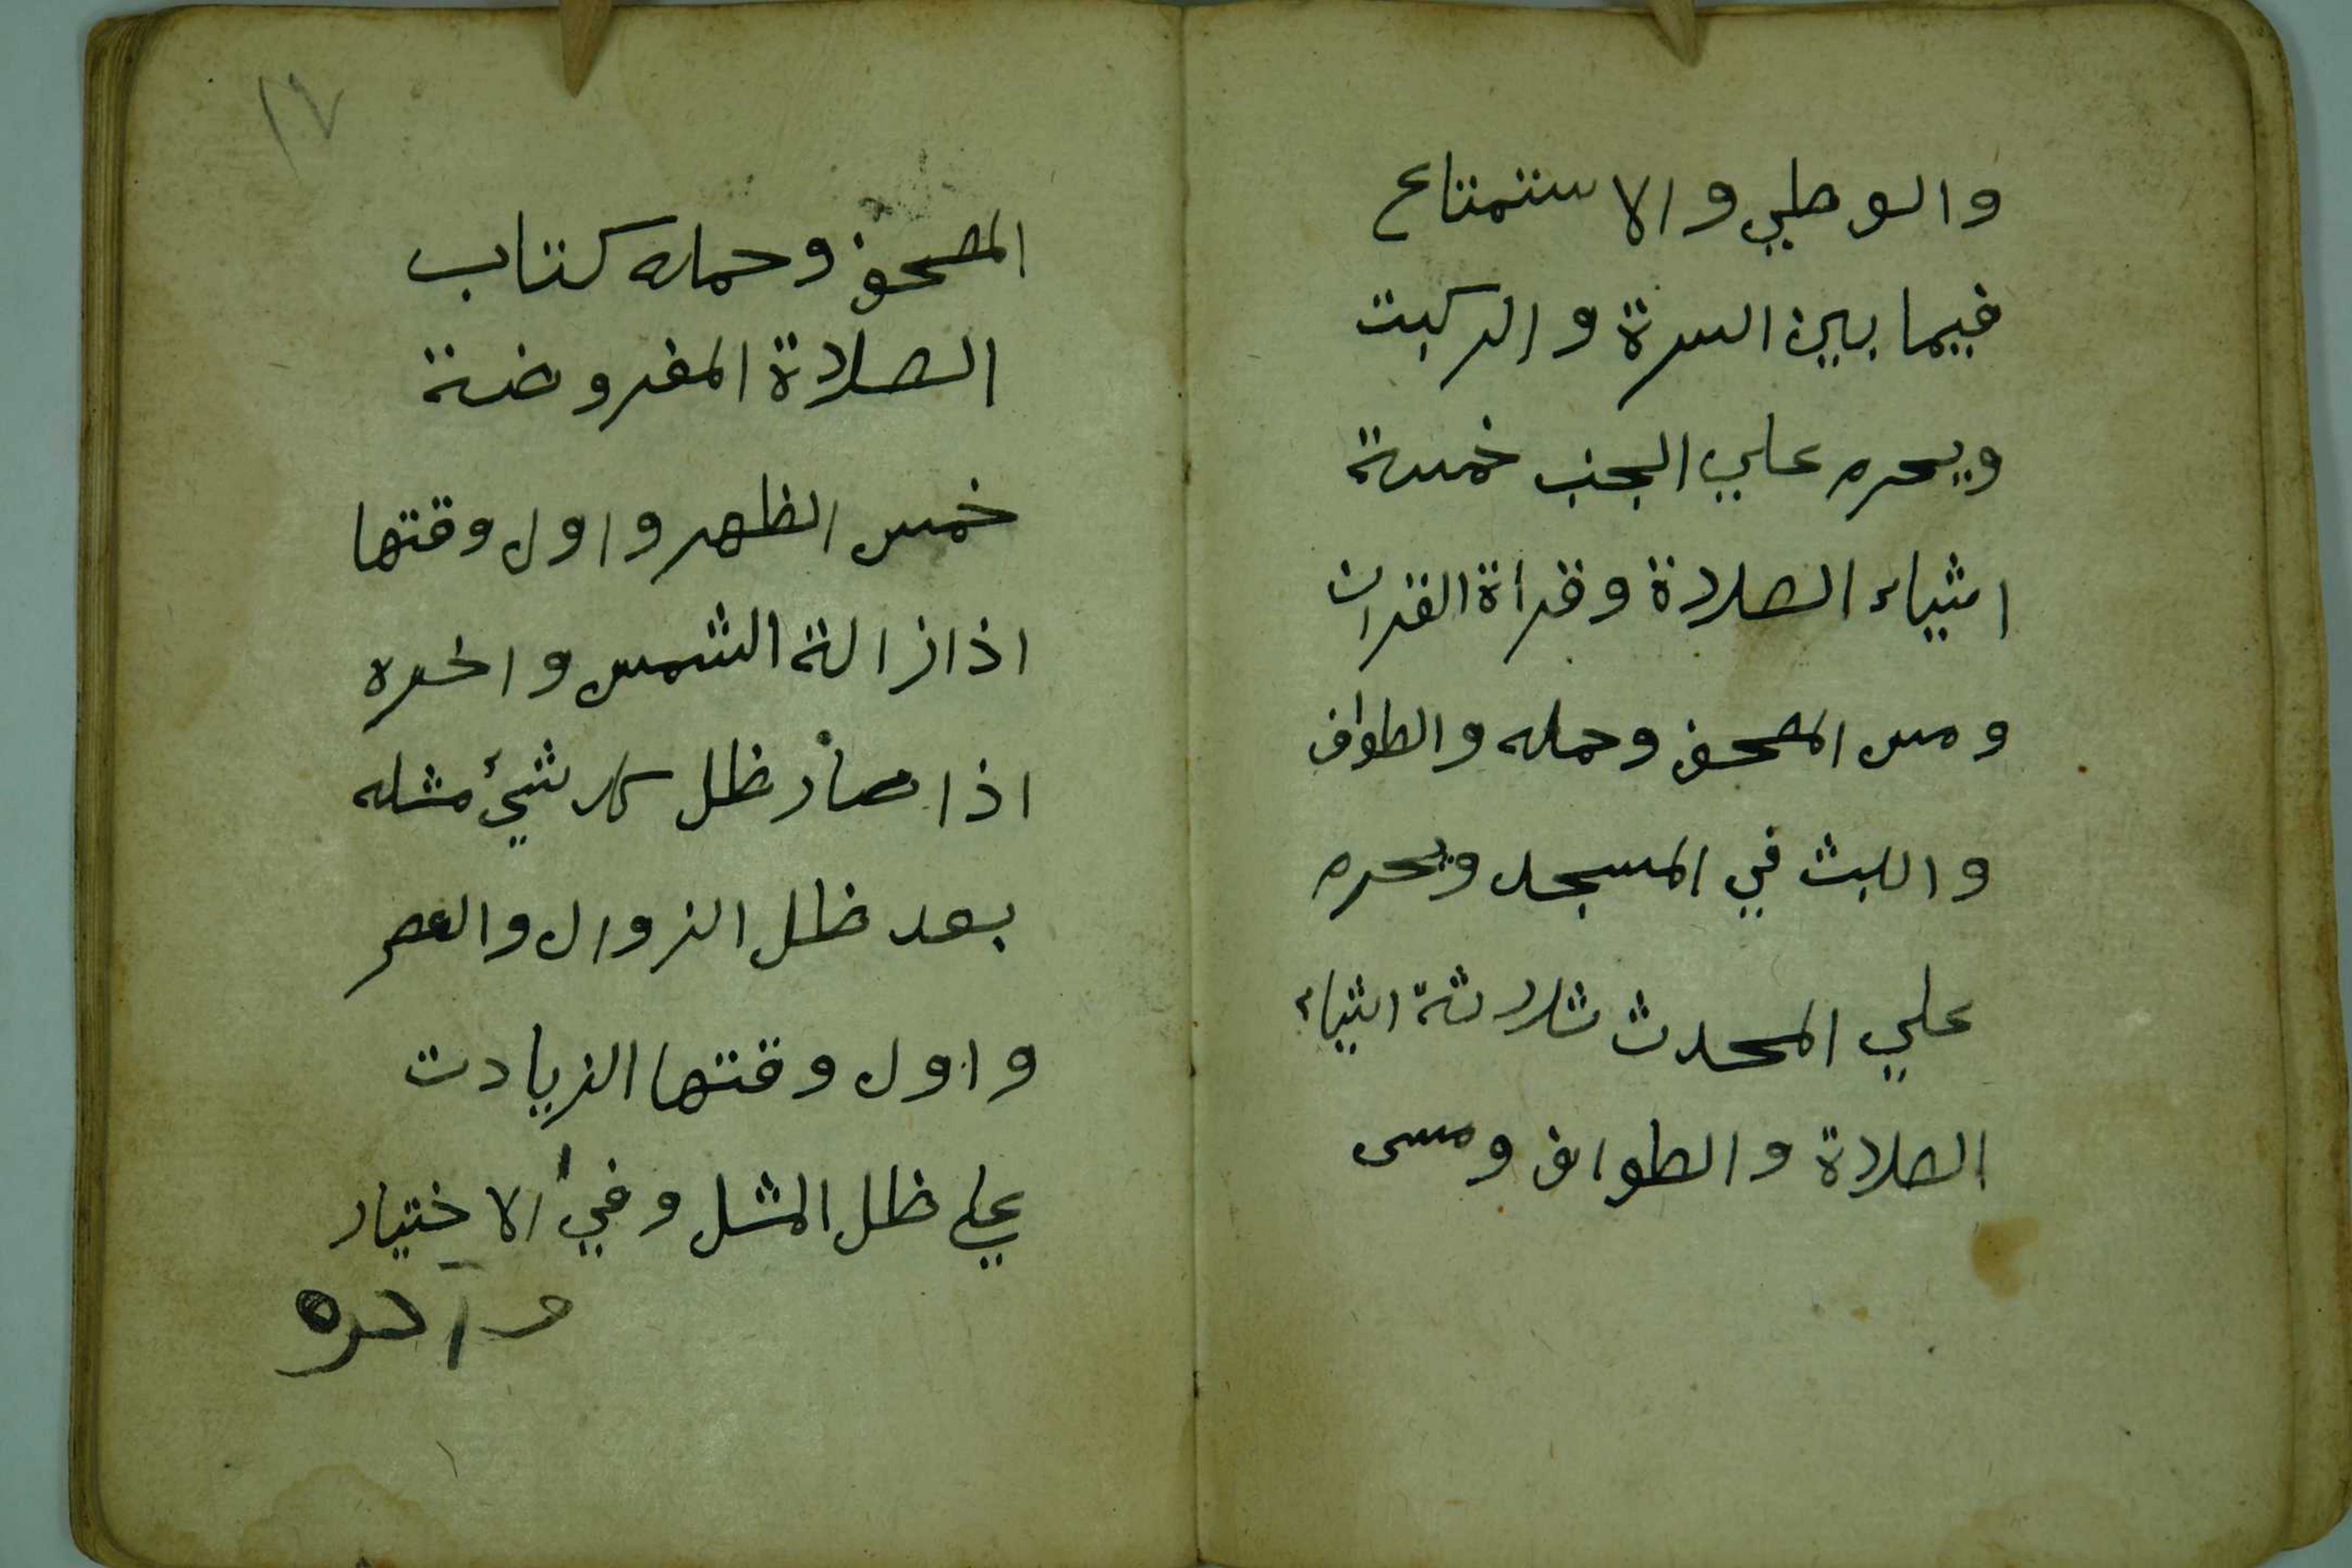 والوطي والاستمتاع
فيما بين السرة والركبت
ويحرم علي الجنب خمسة
اشياء الصلاة وقراة القران
ومس المصحف وحمله والطواف
واللبث في المسجد ويحرم
علي المحدث ثلاثة اشياء
الصلاة والطواف ومس
١٧
المصحف وحمله كتاب
الصلاة المفروضة
خمس الظهر واول وقتها
اذا زالة الشمس واخره
اذا صار ظل كل شيئ مثله
بعد ظل الزوال والعصر
واول وقتها الزيادت
علي ظل المثل وفي الاختيار
واخره